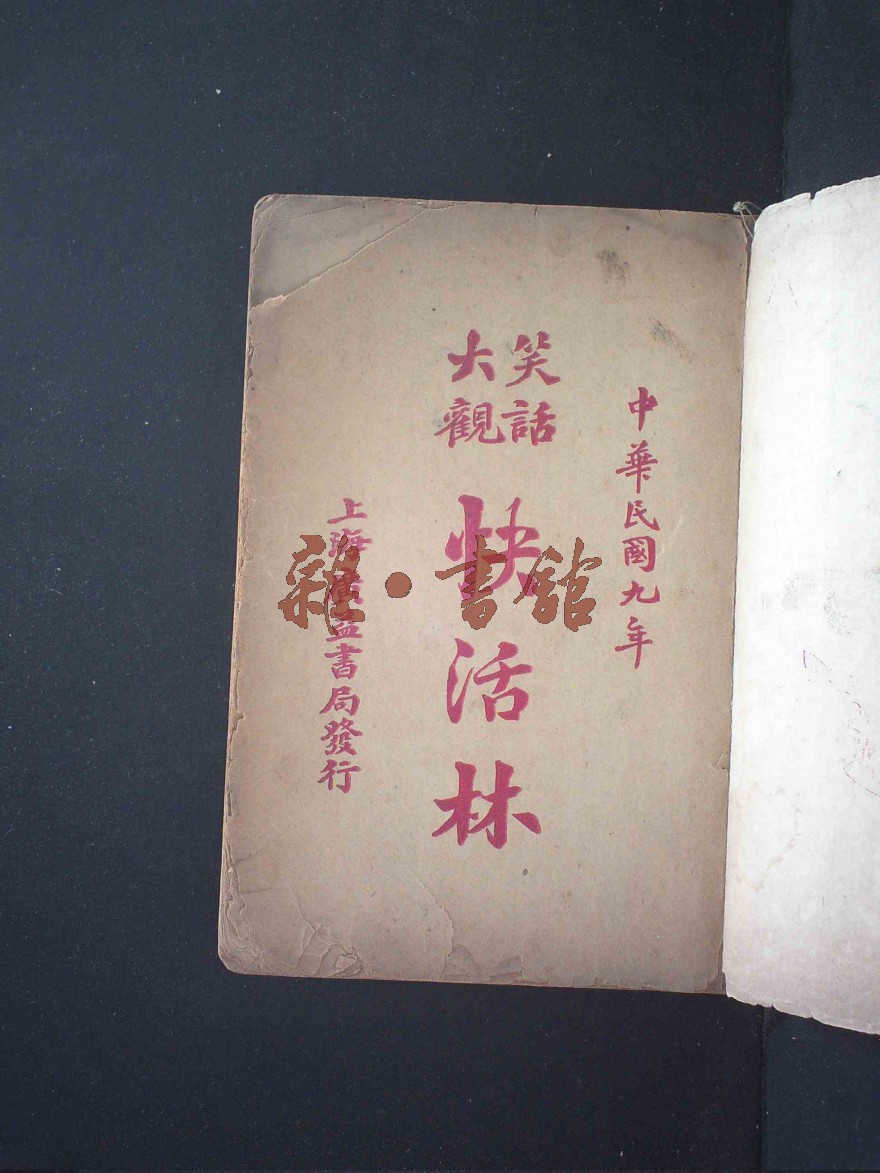 中華民國九年
笑話
大觀
快活林
上海廣益書局發行
雜·書館